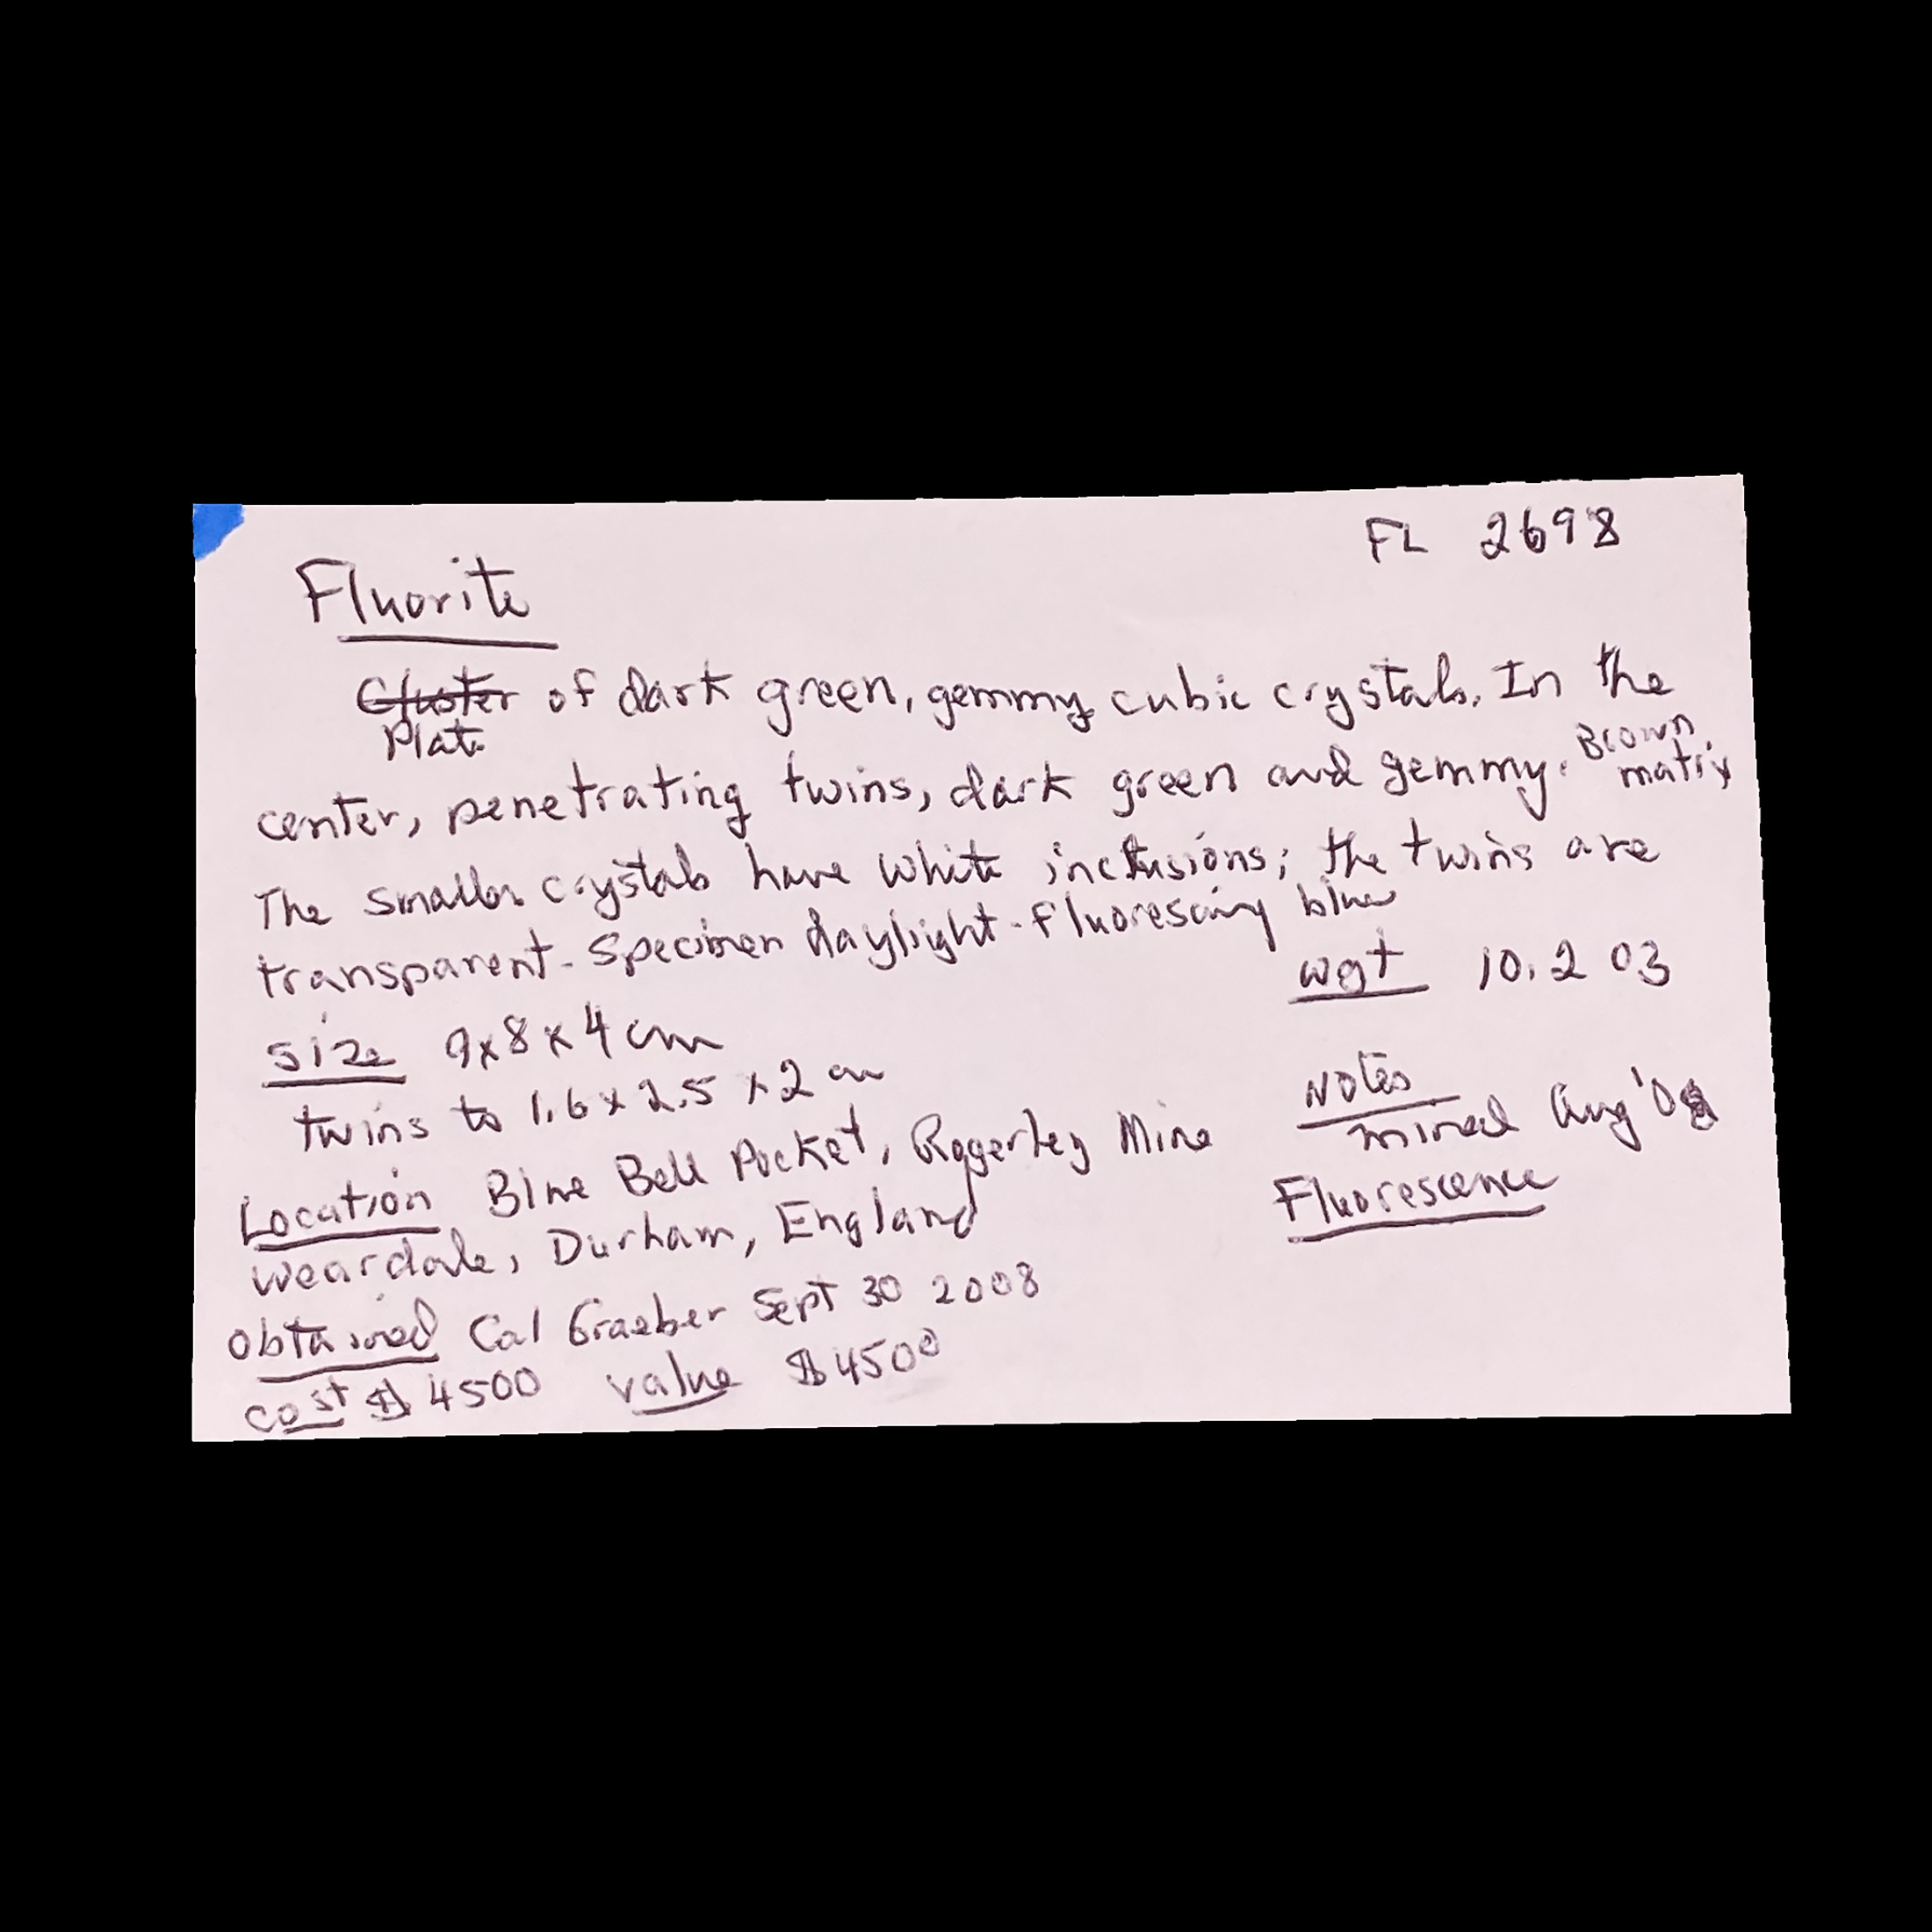 FL 2698
Fluorite
Cluster of dark green, gemmy cubic crystals. In the
Plate
center, penetrating twins, dark green and gemmy. Brown matrix
The smaller crystals have white inclusions; the twins are
transparent. Specimen daylight-fluorescing blue
wgt 10.2 03
size 9x8x4 cm
twins to 1.6 x 2.5 x 2 cm
Notes
mined Aug '08
Location Blue Bell Pocket, Rogerley Mine
Fluorescence
Weardale, Durham, England
Obtained Cal Graeber Sept 30 2008
cost $4500 value $4500